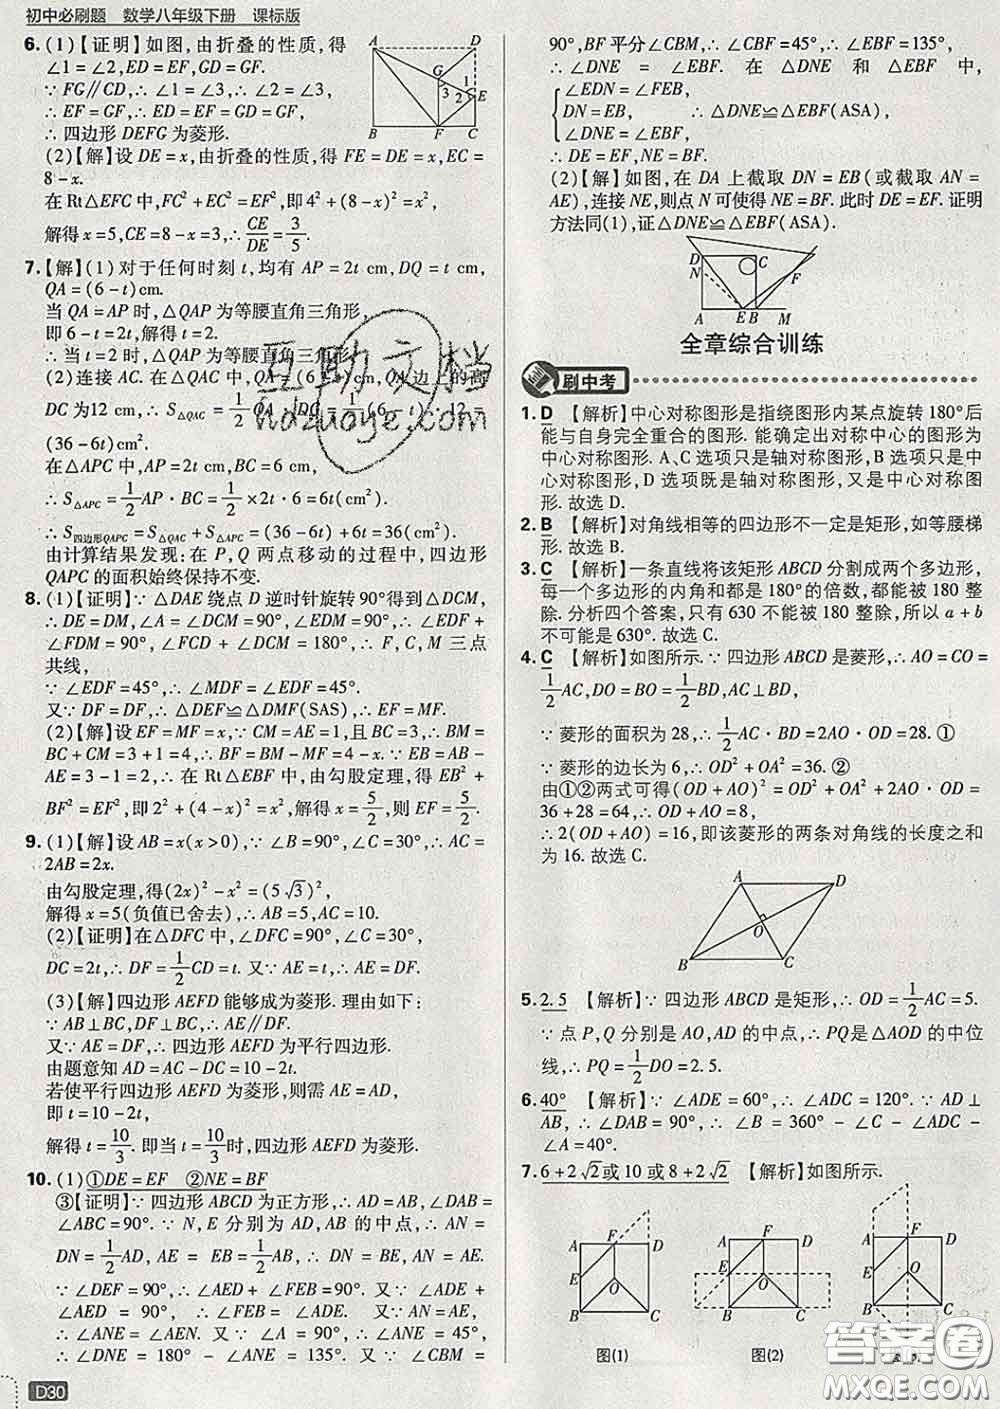 初中必刷题 数学八年级下册 课标版
6. (1)【证明】如图,由折叠的性质,得
∠1=∠2,ED=EF,GD=GF.
∵ FG∥CD,∴ ∠1=∠3,∴ ∠2=∠3,
∴ EF=GF,∴ ED=EF=GD=GF,
∴ 四边形 DEFG 为菱形.
(2)【解】设 DE=x,由折叠的性质,得 FE=DE=x,EC=
8-x.
在Rt△EFC 中,FC²+EC²=EF²,即4²+(8-x)²=x²,
解得 x=5,CE=8-x=3,∴ CE/DE=3/5.
A D G 1 3 2 E B F C
7.【解】(1) 对于任何时刻 t,均有 AP=2t cm,DQ=t cm,
QA=(6-t)cm.
当 QA=AP 时,△QAP 为等腰直角三角形,
即 6-t=2t,解得 t=2.
∴ 当 t=2 时,△QAP 为等腰直角三角形.
(2)连接 AC.在 △QAC 中,QA=(6-t)cm,QA 边上的高
DC 为12 cm,∴ S△QAC=1/2 QA·DC=1/2(6-t)·12=
(36-6t)cm².
在△APC 中,AP=2t cm,BC=6 cm,
∴ S△APC=1/2 AP·BC=1/2×2t·6=6t(cm²).
∴ S四边形QAPC=S△QAC+S△APC=(36-6t)+6t=36(cm²).
由计算结果发现:在 P,Q 两点移动的过程中,四边形
QAPC 的面积始终保持不变.
8. (1)【证明】∵ △DAE 绕点 D 逆时针旋转 90°得到△DCM,
∴ DE=DM,∠A=∠DCM=90°,∠EDM=90°,∴ ∠EDF+
∠FDM=90°,∠FCD+∠DCM=180°,∴ F,C,M 三点
共线,
∵ ∠EDF=45°,∴ ∠MDF=∠EDF=45°.
又∵ DF=DF,∴ △DEF≌△DMF(SAS),∴ EF=MF.
(2)【解】设 EF=MF=x,∵ CM=AE=1,且 BC=3,∴ BM=
BC+CM=3+1=4,∴ BF=BM-MF=4-x.∵ EB=AB-
AE=3-1=2,∴ 在 Rt△EBF 中,由勾股定理,得 EB²+
BF²=EF²,即 2²+(4-x)²=x²,解得 x=5/2,则 EF=5/2.
9. (1)【解】设 AB=x(x>0),∵ ∠B=90°,∠C=30°,∴ AC=
2AB=2x.
由勾股定理,得(2x)²-x²=(5√3)²,
解得 x=5(负值已舍去),∴ AB=5,AC=10.
(2)【证明】在△DFC 中,∠DFC=90°,∠C=30°,
DC=2t,∴ DF=1/2 CD=t.又∵ AE=t,∴ AE=DF.
(3)【解】四边形 AEFD 能够成为菱形.理由如下:
∵ AB⊥BC,DF⊥BC,∴ AE∥DF.
又∵ AE=DF,∴ 四边形 AEFD 为平行四边形.
由题意知 AD=AC-DC=10-2t.
若使平行四边形 AEFD 为菱形,则需 AE=AD,
即 t=10-2t,
解得 t=10/3.即当 t=10/3时,四边形 AEFD 为菱形.
10. (1)①DE=EF ②NE=BF
③【证明】∵ 四边形 ABCD 为正方形,∴ AD=AB,∠DAB=
∠ABC=90°.∵ N,E 分别为 AD,AB 的中点,∴ AN=
DN=1/2 AD,AE=EB=1/2 AB,∴ DN=BE,AN=AE.
∵ ∠DEF=90°,∴ ∠AED+∠FEB=90°.又∵ ∠ADE+
∠AED=90°,∴ ∠FEB=∠ADE.又∵ AN=AE,
∴ ∠ANE=∠AEN.又∵ ∠A=90°,∴ ∠ANE=45°,
∴ ∠DNE=180°-∠ANE=135°.又∵ ∠CBM=
D30
90°,BF 平分∠CBM,∴ ∠CBF=45°,∴ ∠EBF=135°,
∴ ∠DNE=∠EBF.在△DNE 和△EBF 中,
∠EDN=∠FEB,
DN=EB, ∴ △DNE≌△EBF(ASA),
∠DNE=∠EBF,
∴ DE=EF,NE=BF.
(2)【解】如图,在 DA 上截取 DN=EB(或截取 AN=
AE),连接 NE,则点 N 可使得 NE=BF.此时 DE=EF.证明
方法同(1),证△DNE≌△EBF(ASA).
D C F N A E B M
全章综合训练
刷中考
1. D 【解析】中心对称图形是指绕图形内某点旋转 180°后
能与自身完全重合的图形.能确定出对称中心的图形为
中心对称图形.A、C 选项只是轴对称图形,B 选项只是中
心对称图形,D 选项既是轴对称图形,又是中心对称图
形.故选 D.
2. B 【解析】对角线相等的四边形不一定是矩形,如等腰梯
形.故选 B.
3. C 【解析】一条直线将该矩形 ABCD 分割成两个多边形,
每一个多边形的内角和都是 180°的倍数,都能被 180 整
除.分析四个答案,只有 630 不能被 180 整除,所以 a+b
不可能是 630°.故选 C.
4. C 【解析】如图所示.∵ 四边形 ABCD 是菱形,∴ AO=CO=
1/2 AC,DO=BO=1/2 BD,AC⊥BD,
∵ 菱形的面积为 28,∴ 1/2 AC·BD=2AO·OD=28.①
∵ 菱形的边长为 6,∴ OD²+OA²=36.②
由①②两式可得(OD+AO)²=OD²+OA²+2AO·OD=
36+28=64,∴ OD+AO=8,
∴ 2(OD+AO)=16,即该菱形的两条对角线的长度之和
为 16.故选 C.
A D O B C
5. 2.5 【解析】∵ 四边形 ABCD 是矩形,∴ OD=1/2 AC=5.
∵ 点 P,Q 分别是 AO,AD 的中点,∴ PQ是△AOD 的中位
线,∴ PQ=1/2 DO=2.5.
6. 40° 【解析】∵ ∠ADE=60°,∴ ∠ADC=120°.∵ AD⊥
AB,∴ ∠DAB=90°,∴ ∠B=360°-∠C-∠ADC-
∠A=40°.
7. 6+2√2或 10 或 8+2√2 【解析】如图所示.
A F D E O B C
A F D E O B C
A F D E O B C
图(1) 图(2)
互助文档
hdzuoye.com
答案圈
MXQE.COM